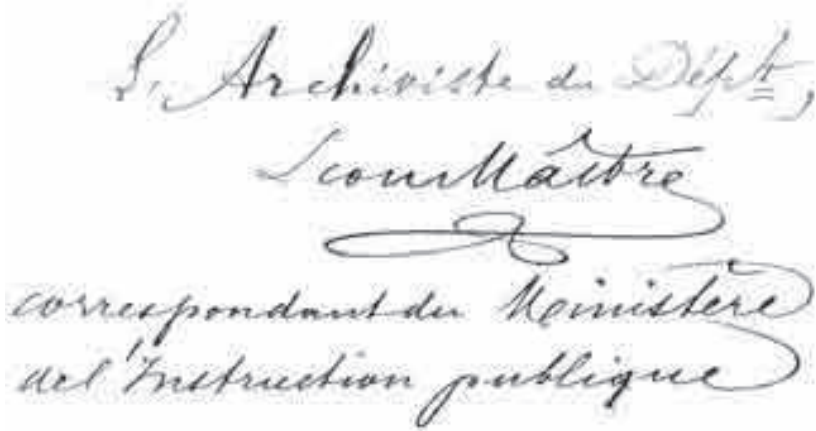 L'Archiviste du Dépt,
Léon Maître
correspondant du Ministère
de l'Instruction publique